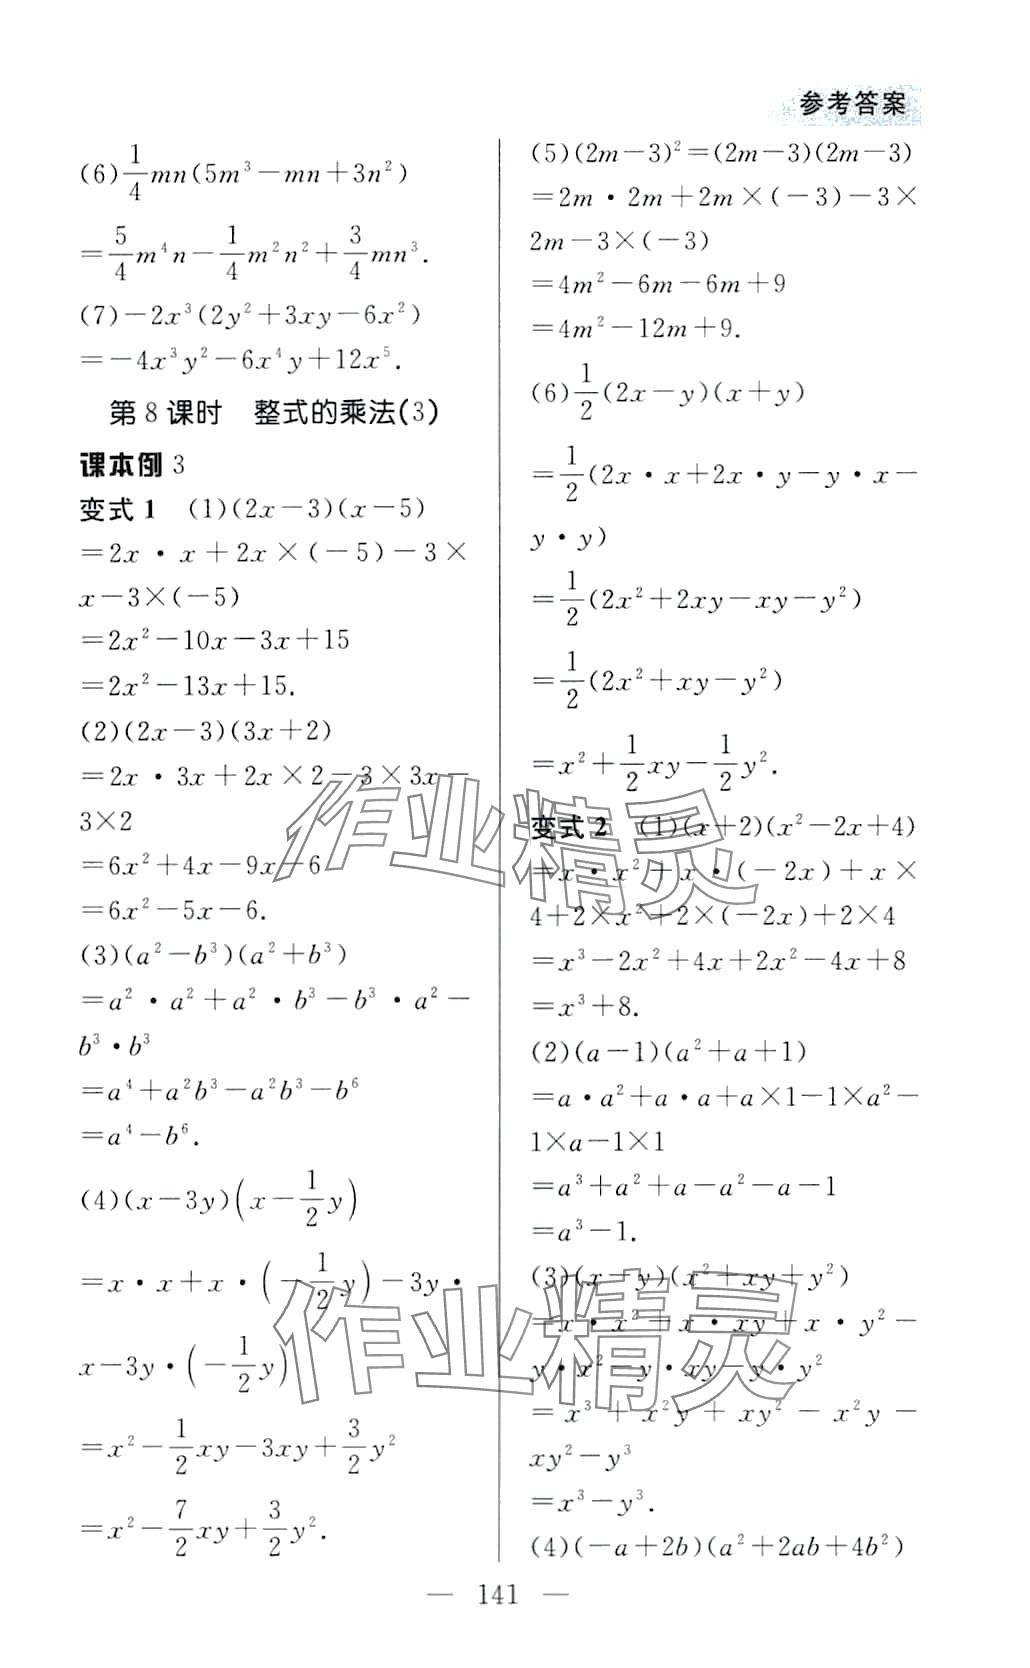 参考答案
(6)\frac{1}{4}mn(5m³-mn+3n²)
=\frac{5}{4}m⁴n-\frac{1}{4}m²n²+\frac{3}{4}mn³.
(7)-2x³(2y²+3xy-6x²)
=-4x³y²-6x⁴y+12x⁵.
第8课时 整式的乘法(3)
课本例3
变式1 (1)(2x-3)(x-5)
=2x·x+2x×(-5)-3×
x-3×(-5)
=2x²-10x-3x+15
=2x²-13x+15.
(2)(2x-3)(3x+2)
=2x·3x+2x×2-3×3x-
3×2
=6x²+4x-9x-6
=6x²-5x-6.
(3)(a²-b³)(a²+b³)
=a²·a²+a²·b³-b³·a²-
b³·b³
=a⁴+a²b³-a²b³-b⁶
=a⁴-b⁶.
(4)(x-3y)(x-\frac{1}{2}y)
=x·x+x·(-\frac{1}{2}y)-3y·
x-3y·(-\frac{1}{2}y)
=x²-\frac{1}{2}xy-3xy+\frac{3}{2}y²
=x²-\frac{7}{2}xy+\frac{3}{2}y².
(5)(2m-3)²=(2m-3)(2m-3)
=2m·2m+2m×(-3)-3×
2m-3×(-3)
=4m²-6m-6m+9
=4m²-12m+9.
(6)\frac{1}{2}(2x-y)(x+y)
=\frac{1}{2}(2x·x+2x·y-y·x-
y·y)
=\frac{1}{2}(2x²+2xy-xy-y²)
=\frac{1}{2}(2x²+xy-y²)
=x²+\frac{1}{2}xy-\frac{1}{2}y².
变式2 (1)(x+2)(x²-2x+4)
=x·x²+x·(-2x)+x×
4+2×x²+2×(-2x)+2×4
=x³-2x²+4x+2x²-4x+8
=x³+8.
(2)(a-1)(a²+a+1)
=a·a²+a·a+a×1-1×a²-
1×a-1×1
=a³+a²+a-a²-a-1
=a³-1.
(3)(x-y)(x²+xy+y²)
=x·x²+x·xy+x·y²-
y·x²-y·xy-y·y²
=x³+x²y+xy²-x²y-
xy²-y³
=x³-y³.
(4)(-a+2b)(a²+2ab+4b²)
— 141 —
作业精灵
作业精灵